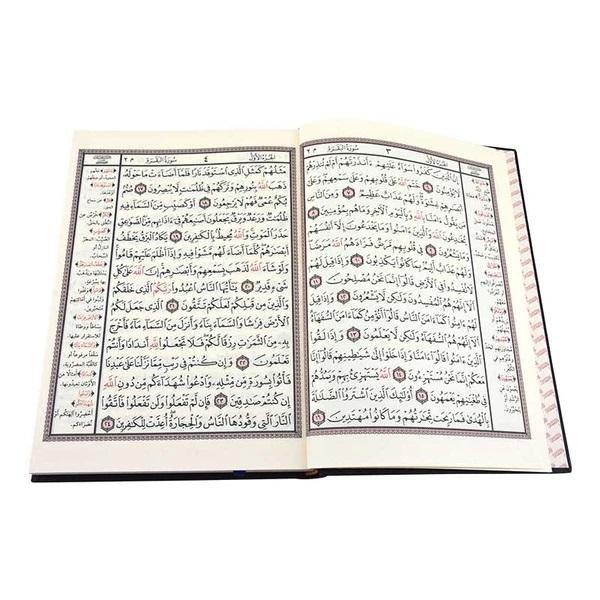 الجزء الأول ٣ سورة البقرة
إِنَّ الَّذِينَ كَفَرُوا سَوَاءٌ عَلَيْهِمْ ءَأَنذَرْتَهُمْ أَمْ لَمْ تُنذِرْهُمْ
لَا يُؤْمِنُونَ ٦ خَتَمَ اللَّهُ عَلَى قُلُوبِهِمْ وَعَلَى سَمْعِهِمْ وَعَلَى
أَبْصَارِهِمْ غِشَاوَةٌ وَلَهُمْ عَذَابٌ عَظِيمٌ ٧ وَمِنَ النَّاسِ
مَن يَقُولُ ءَامَنَّا بِاللَّهِ وَبِالْيَوْمِ الْآخِرِ وَمَا هُم بِمُؤْمِنِينَ ٨
يُخَادِعُونَ اللَّهَ وَالَّذِينَ ءَامَنُوا وَمَا يَخْدَعُونَ إِلَّا أَنفُسَهُمْ وَمَا
يَشْعُرُونَ ٩ فِي قُلُوبِهِم مَّرَضٌ فَزَادَهُمُ اللَّهُ مَرَضًا
وَلَهُمْ عَذَابٌ أَلِيمٌ بِمَا كَانُوا يَكْذِبُونَ ١٠ وَإِذَا قِيلَ
لَهُمْ لَا تُفْسِدُوا فِي الْأَرْضِ قَالُوا إِنَّمَا نَحْنُ مُصْلِحُونَ ١١
أَلَا إِنَّهُمْ هُمُ الْمُفْسِدُونَ وَلَكِن لَّا يَشْعُرُونَ ١٢ وَإِذَا قِيلَ
لَهُمْ ءَامِنُوا كَمَا ءَامَنَ النَّاسُ قَالُوا أَنُؤْمِنُ كَمَا ءَامَنَ السُّفَهَاءُ
أَلَا إِنَّهُمْ هُمُ السُّفَهَاءُ وَلَكِن لَّا يَعْلَمُونَ ١٣ وَإِذَا لَقُوا
الَّذِينَ ءَامَنُوا قَالُوا ءَامَنَّا وَإِذَا خَلَوْا إِلَى شَيَاطِينِهِمْ قَالُوا إِنَّا
مَعَكُمْ إِنَّمَا نَحْنُ مُسْتَهْزِءُونَ ١٤ اللَّهُ يَسْتَهْزِئُ بِهِمْ وَيَمُدُّهُمْ
فِي طُغْيَانِهِمْ يَعْمَهُونَ ١٥ أُولَئِكَ الَّذِينَ اشْتَرَوُا الضَّلَالَةَ
بِالْهُدَى فَمَا رَبِحَت تِّجَارَتُهُمْ وَمَا كَانُوا مُهْتَدِينَ ١٦
الجزء الأول ٤ سورة البقرة
مَثَلُهُمْ كَمَثَلِ الَّذِي اسْتَوْقَدَ نَارًا فَلَمَّا أَضَاءَتْ مَا حَوْلَهُ
ذَهَبَ اللَّهُ بِنُورِهِمْ وَتَرَكَهُمْ فِي ظُلُمَاتٍ لَّا يُبْصِرُونَ ١٧ صُمٌّ
بُكْمٌ عُمْيٌ فَهُمْ لَا يَرْجِعُونَ ١٨ أَوْ كَصَيِّبٍ مِّنَ السَّمَاءِ فِيهِ
ظُلُمَاتٌ وَرَعْدٌ وَبَرْقٌ يَجْعَلُونَ أَصَابِعَهُمْ فِي ءَاذَانِهِم مِّنَ الصَّوَاعِقِ
حَذَرَ الْمَوْتِ وَاللَّهُ مُحِيطٌ بِالْكَافِرِينَ ١٩ يَكَادُ الْبَرْقُ يَخْطَفُ
أَبْصَارَهُمْ كُلَّمَا أَضَاءَ لَهُم مَّشَوْا فِيهِ وَإِذَا أَظْلَمَ عَلَيْهِمْ قَامُوا
وَلَوْ شَاءَ اللَّهُ لَذَهَبَ بِسَمْعِهِمْ وَأَبْصَارِهِمْ إِنَّ اللَّهَ عَلَى كُلِّ
شَيْءٍ قَدِيرٌ ٢٠ يَاأَيُّهَا النَّاسُ اعْبُدُوا رَبَّكُمُ الَّذِي خَلَقَكُمْ
وَالَّذِينَ مِن قَبْلِكُمْ لَعَلَّكُمْ تَتَّقُونَ ٢١ الَّذِي جَعَلَ لَكُمُ
الْأَرْضَ فِرَاشًا وَالسَّمَاءَ بِنَاءً وَأَنزَلَ مِنَ السَّمَاءِ مَاءً فَأَخْرَجَ
بِهِ مِنَ الثَّمَرَاتِ رِزْقًا لَّكُمْ فَلَا تَجْعَلُوا لِلَّهِ أَندَادًا وَأَنتُمْ
تَعْلَمُونَ ٢٢ وَإِن كُنتُمْ فِي رَيْبٍ مِّمَّا نَزَّلْنَا عَلَى عَبْدِنَا
فَأْتُوا بِسُورَةٍ مِّن مِّثْلِهِ وَادْعُوا شُهَدَاءَكُم مِّن دُونِ اللَّهِ
إِن كُنتُمْ صَادِقِينَ ٢٣ فَإِن لَّمْ تَفْعَلُوا وَلَن تَفْعَلُوا فَاتَّقُوا
النَّارَ الَّتِي وَقُودُهَا النَّاسُ وَالْحِجَارَةُ أُعِدَّتْ لِلْكَافِرِينَ ٢٤